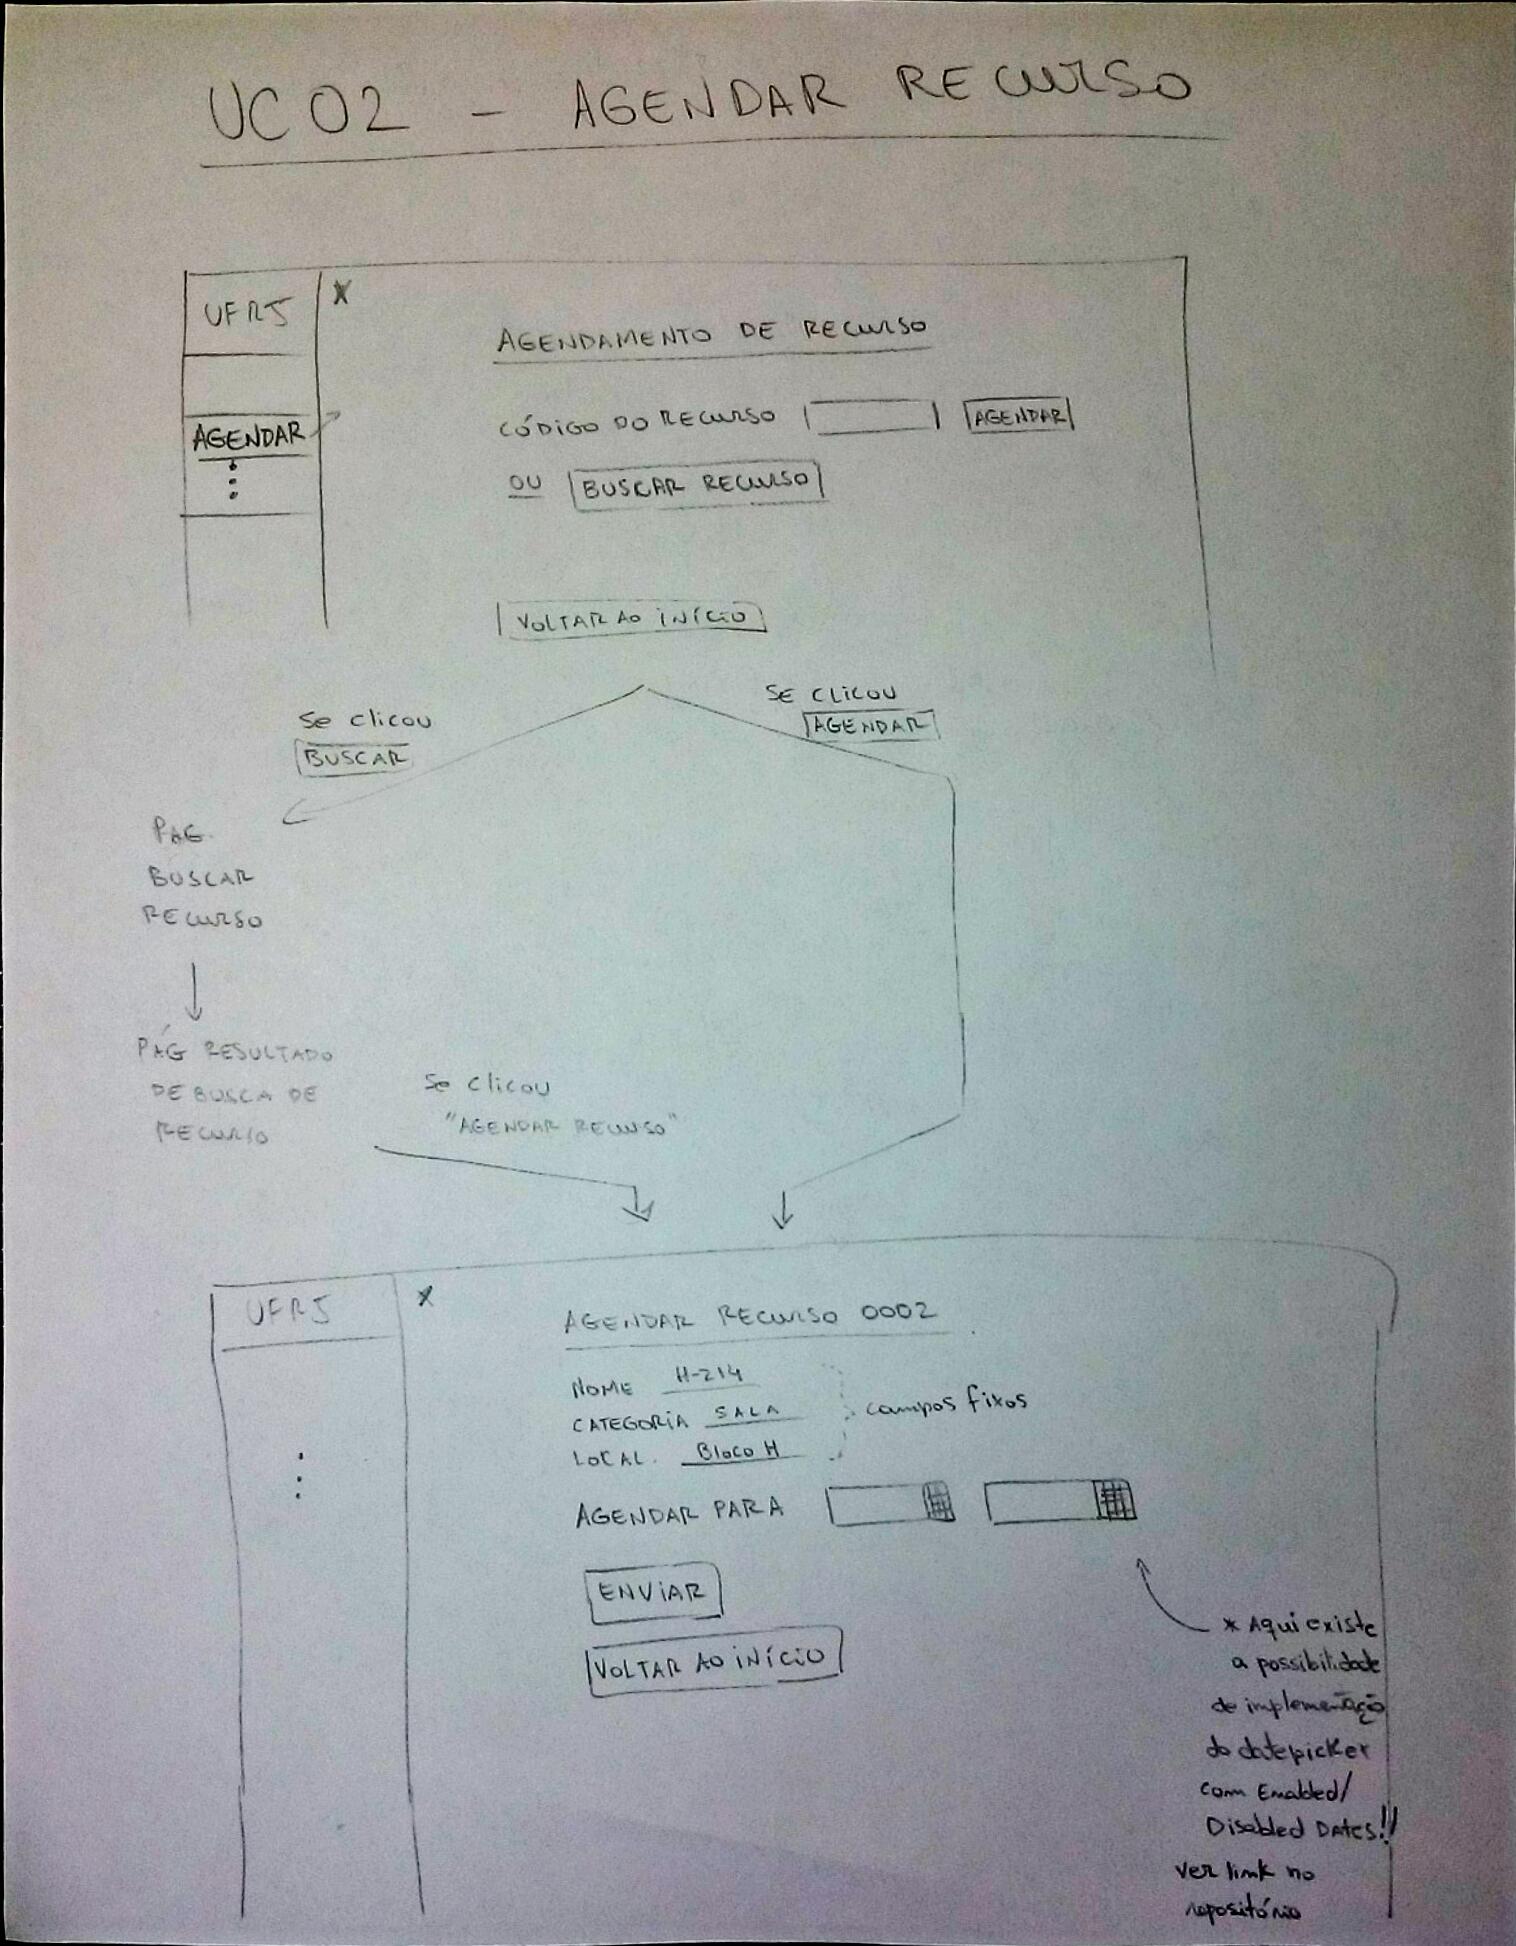 UC02 - AGENDAR RECURSO
UFRJ
*
AGENDAMENTO DE RECURSO
AGENDAR
CÓDIGO DO RECURSO
AGENDAR
OU BUSCAR RECURSO
VOLTAR AO INÍCIO
Se clicou
BUSCAR
SE CLICOU
AGENDAR
PAG.
BUSCAR
RECURSO
PÁG RESULTADO
DE BUSCA DE
RECURSO
Se clicou
"AGENDAR RECURSO"
UFRJ
*
AGENDAR RECURSO 0002
NOME H-214
CATEGORIA SALA
LOCAL. Bloco H
campos fixos
AGENDAR PARA
ENVIAR
VOLTAR AO INÍCIO
* Aqui existe
a possibilidade
de implementação
do datepicker
com Enabled/
Disabled Dates!!
ver link no
repositório